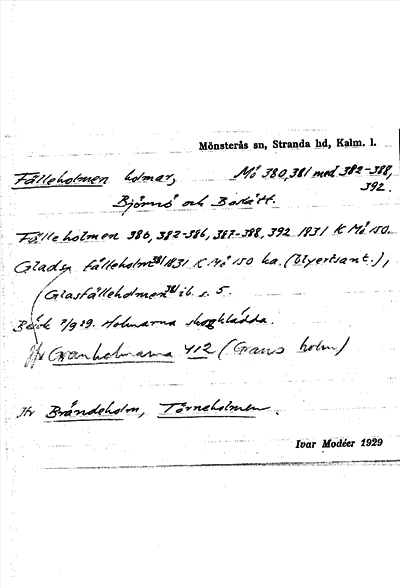 Mönsterås sn, Stranda hd, Kalm. l.
Fälleholmen holmar, Mö 380,381 med 382-388,
392.
Björnö och Boköt.
Fälleholmen 380, 382-386, 387-388, 392 1831 K Mö 150.
Glads fälleholm 381 1831 K Mö 150 ba. (blyertsant.),
Glasfälleholmen 381 ib. s. 5.
Besök 7/9 29. Holmarna skogklädda.
Jfr Granholmarna 412 (Grans holm)
Jfr Brändeholm, Törneholmen.
Ivar Modéer 1929